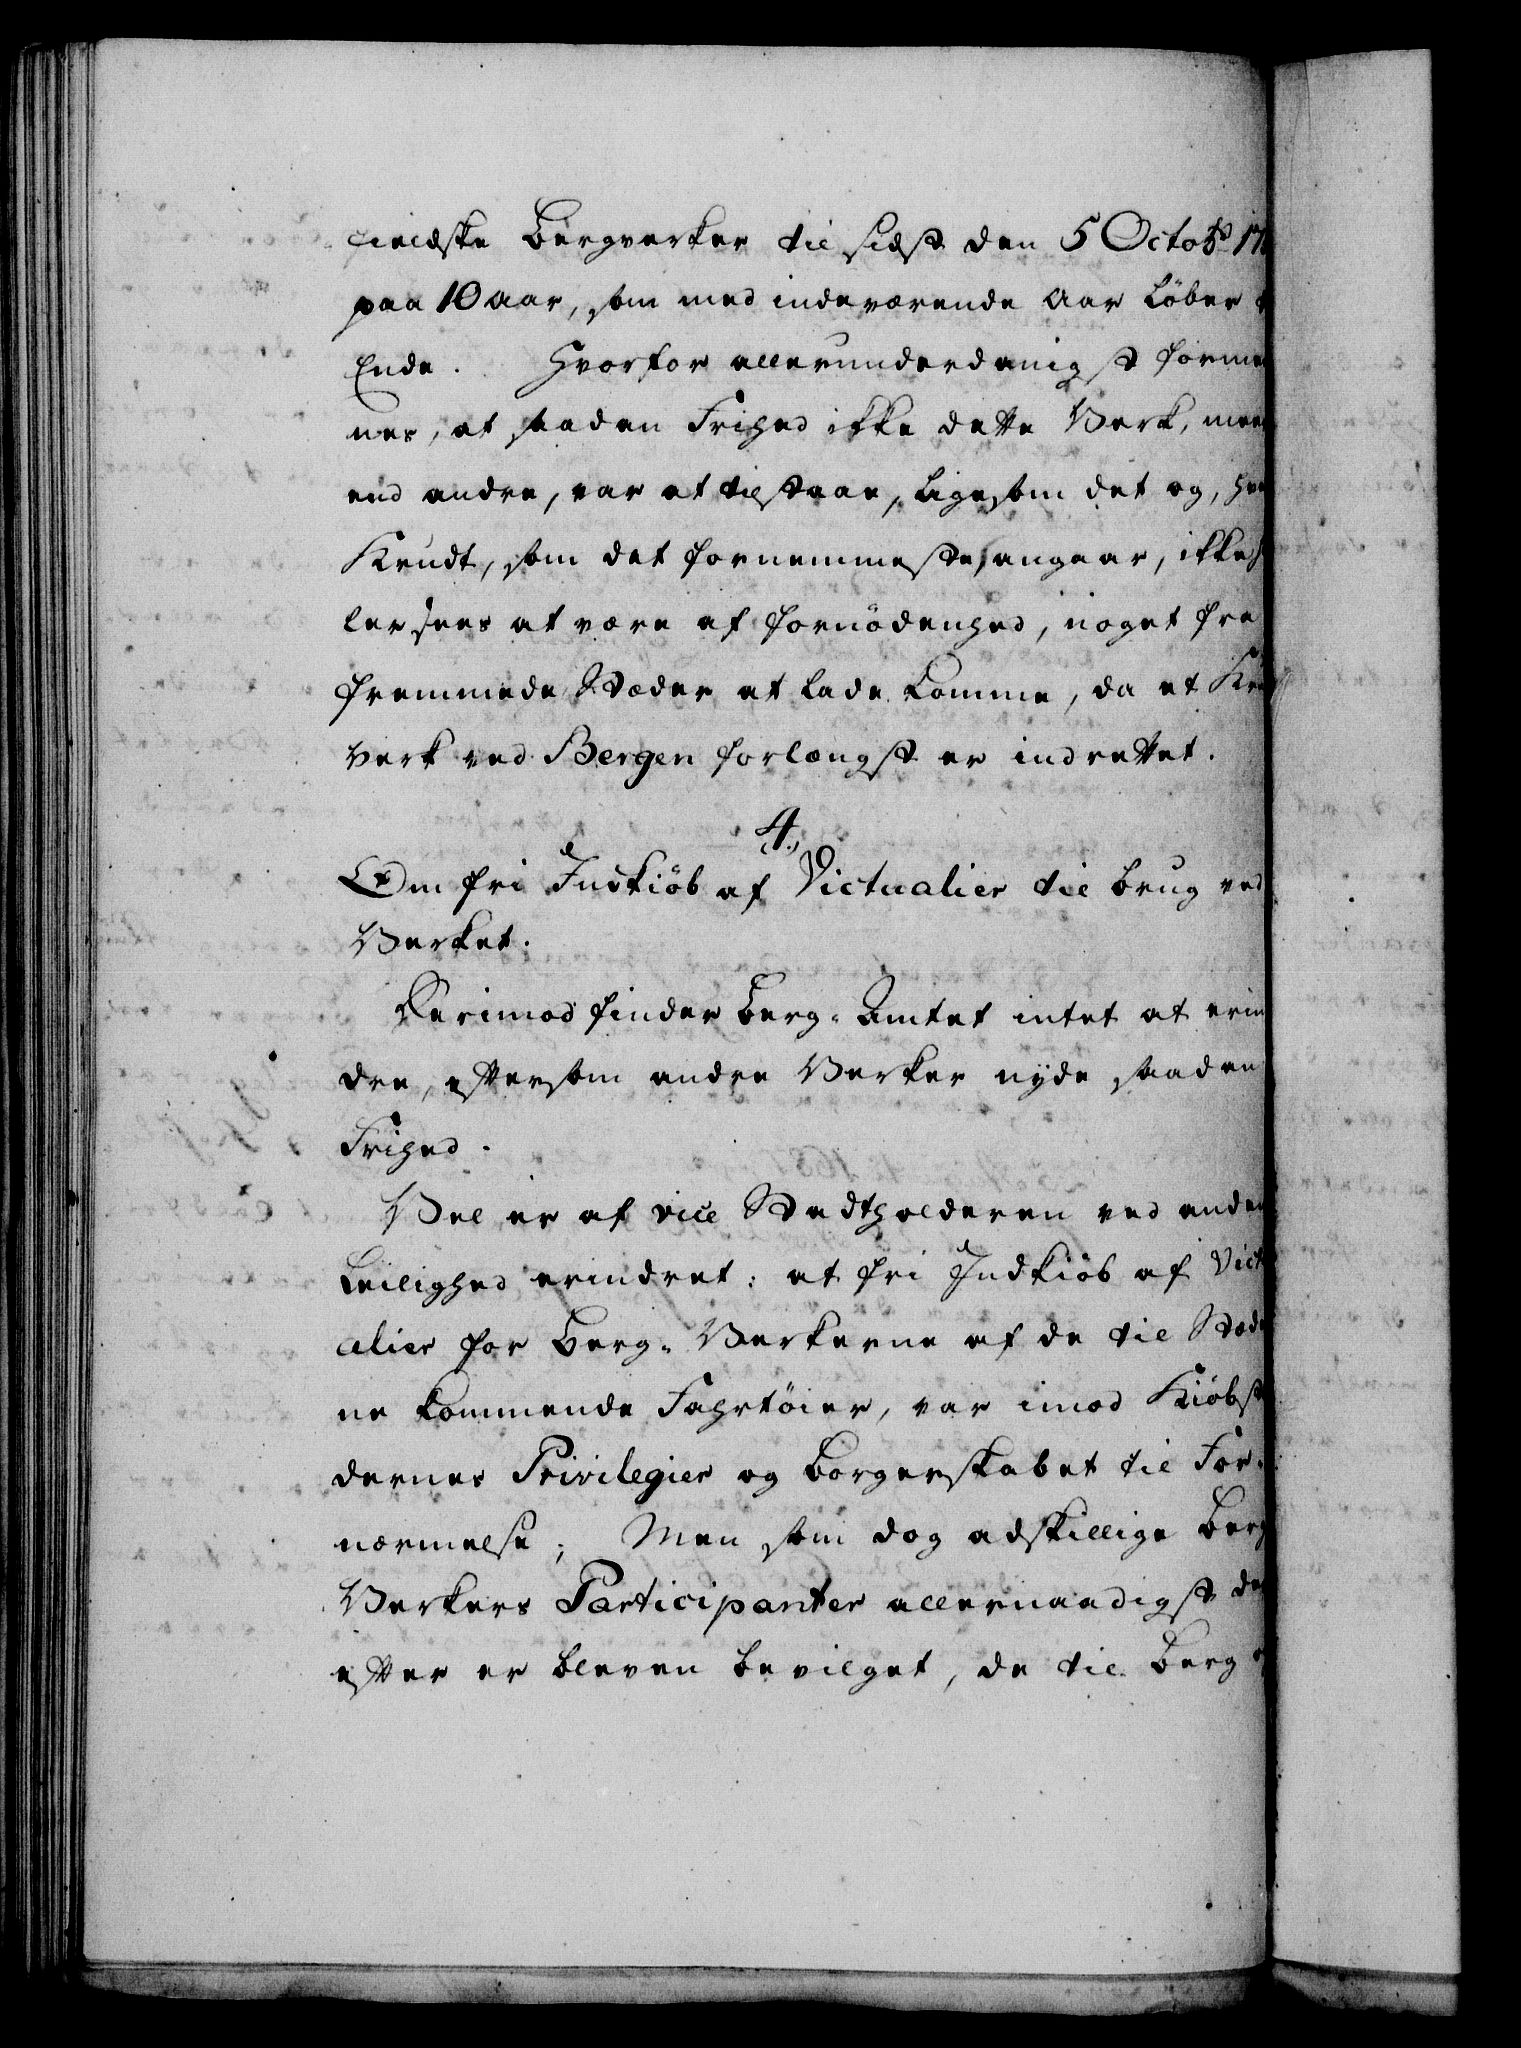 fieldske Bergverker til sidst den 5 Octobr 17
paa 10 aar, som med indeværende Aar løber
Ende. Hvorfor allerunderdanigst forme
nes, at saaden Frihed ikke dette Verk, meer
end andre, var at tilstaae, ligesom det og, hva
Krudt, som det fornemmeste, angaar, ikke h
ler sees at være af fornødenhed, noget fra
fremmede Stæder at lade komme, da et Kru
verk ved Bergen forlængst er indrettet.
4.
Om fri Indkiøb af Victualier til brug ved
Verket.
Herimod finder Berg-Amtet intet at erin
dre, eftersom andre Verker nyde saaden
Frihed.
Vel er af vice Stadtholderen ved anden
Leilighed erindret: at fri Indkiøb af Vict
alier for Berg-Verkerne af de til Stæde
ne kommende Fahrtøier, var imod Kiøbst
dernes Privilegier og borgerskabet til For-
nærmelse; Men som dog adskillige Berg
Verkers Participanter allernaadigst der
efter er bleven bevilget, de til Berg